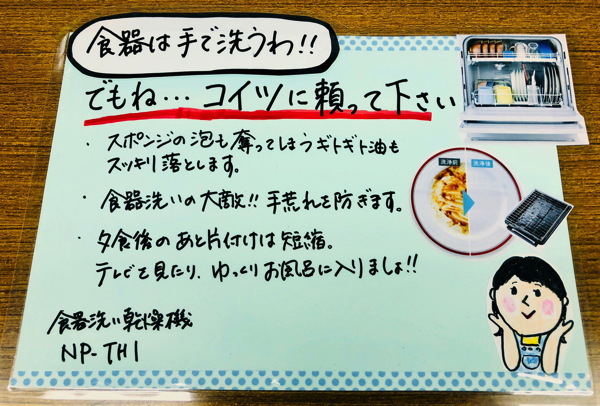 食器は手で洗うわ!!
でもね…コイツに頼って下さい
・スポンジの泡も奪ってしまうギトギト油も
スッキリ落とします。
・食器洗いの大敵!! 手荒れを防ぎます。
・夕食後のあと片付けは短縮。
テレビを見たり、ゆっくりお風呂に入りましょ!!
洗浄前 洗浄後
食器洗い乾燥機
NP-TH1